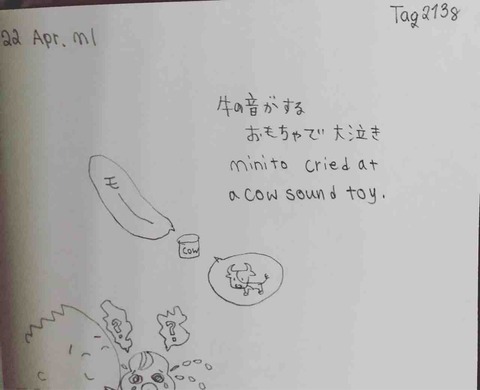 22 Apr. Mi
Tag2138
牛の音がする
おもちゃで大泣き
minito cried at
a cow sound toy.
モー
COW
?
?